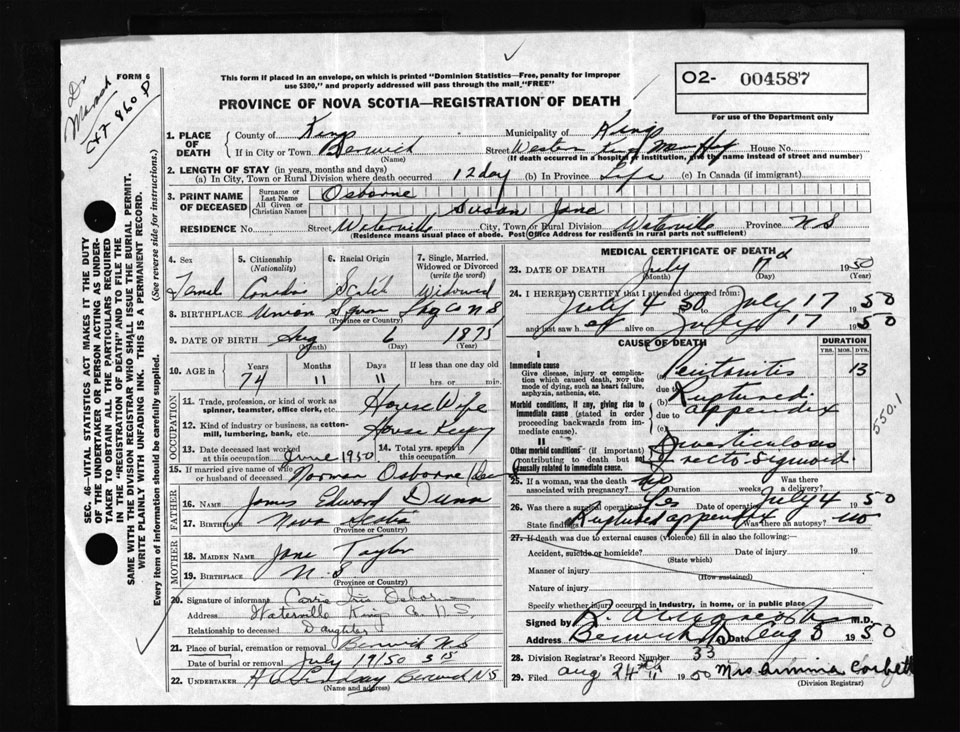 Dr
Marsh
FORM 6
This form if placed in an envelope, on which is printed "Dominion Statistics—Free, penalty for improper
use $300," and properly addressed will pass through the mail "FREE"
02- 004587
For use of the Department only
PROVINCE OF NOVA SCOTIA—REGISTRATION OF DEATH
1. PLACE OF DEATH
County of Kings Municipality of Kings
If in City or Town Berwick (Name) Street Western Kings Mem Hosp House No.
(If death occurred in a hospital or institution, give the name instead of street and number)
2. LENGTH OF STAY (in years, months and days)
(a) In City, Town or Rural Division where death occurred 12 day (b) In Province Life (c) In Canada (if immigrant)
3. PRINT NAME OF DECEASED
Surname or Last Name Osborne
All Given or Christian Names Susan Jane
RESIDENCE No. Street Waterville City, Town or Rural Division Waterville Province N S
(Residence means usual place of abode. Post Office Address for residents in rural parts not sufficient)
SEC. 46—VITAL STATISTICS ACT MAKES IT THE DUTY
OF THE UNDERTAKER OR PERSON ACTING AS UNDER-
TAKER TO OBTAIN ALL THE PARTICULARS REQUIRED
IN THE "REGISTRATION OF DEATH" AND TO FILE THE
SAME WITH THE DIVISION REGISTRAR WHO SHALL ISSUE THE BURIAL PERMIT.
WRITE PLAINLY WITH UNFADING INK. THIS IS A PERMANENT RECORD.
Every item of information should be carefully supplied. (See reverse side for instructions.)
4. Sex 5. Citizenship (Nationality) 6. Racial Origin 7. Single, Married, Widowed or Divorced (write the word)
Widowed
8. BIRTHPLACE Union (Province or Country) N S
9. DATE OF BIRTH Aug (Month) 6 (Day) 1875 (Year)
10. AGE in Years 74 Months 11 Days 11 hrs. or min.
OCCUPATION
11. Trade, profession, or kind of work as
spinner, teamster, office clerk, etc. House Wife
12. Kind of industry or business, as cotten-
mill, lumbering, bank, etc. House
13. Date deceased last worked at this occupation June 1950 14. Total yrs. spent in this occupation
15. If married give name of wife
or husband of deceased Norman Osborne
FATHER
16. NAME James Edward Dunn
17. BIRTHPLACE Nova Scotia
(Province or Country)
MOTHER
18. MAIDEN NAME Jane Taylor
19. BIRTHPLACE N. S
(Province or Country)
20. Signature of informant Carrie Iris Osborne
Address Waterville Kings Co. N.S.
Relationship to deceased Daughter
21. Place of burial, cremation or removal Berwick N S
Date of burial or removal July 19/50
22. UNDERTAKER Berwick NS
(Name and address)
MEDICAL CERTIFICATE OF DEATH
23. DATE OF DEATH July (Month) 17 (Day) 1950 (Year)
24. I HEREBY CERTIFY that I attended deceased from:
July 4 50 to July 17 1950
and last saw her alive on July 17 1950
CAUSE OF DEATH
DURATION
YRS. MOS. DYS.
I
Immediate cause
Give disease, injury or complica-
tion which caused death, not the
mode of dying, such as heart failure,
asphyxia, asthenia, etc.
Peritonitis 13
due to
Morbid conditions, if any, giving rise to
immediate cause (stated in order
proceeding backwards from im-
mediate cause).
(b) Ruptured
due to appendix
(c)
II
Other morbid conditions (if important)
contributing to death but not
causally related to immediate cause.
Diverticulosis
recto-sigmoid.
550.1
25. If a woman, was the death
associated with pregnancy? no Duration weeks Was there
a delivery?
26. Was there a surgical operation? Yes Date of operation July 4 1950
State findings Ruptured appendix Was there an autopsy? no
27. If death was due to external causes (violence) fill in also the following:—
Accident, suicide or homicide? (State which) Date of injury 19
Manner of injury (How sustained)
Nature of injury
Specify whether injury occurred in industry, in home, or in public place
Signed by M.D.
Address Berwick Date Aug 3 1950
28. Division Registrar's Record Number 33
29. Filed Aug 24th 1950 Mrs Corbett
(Division Registrar)